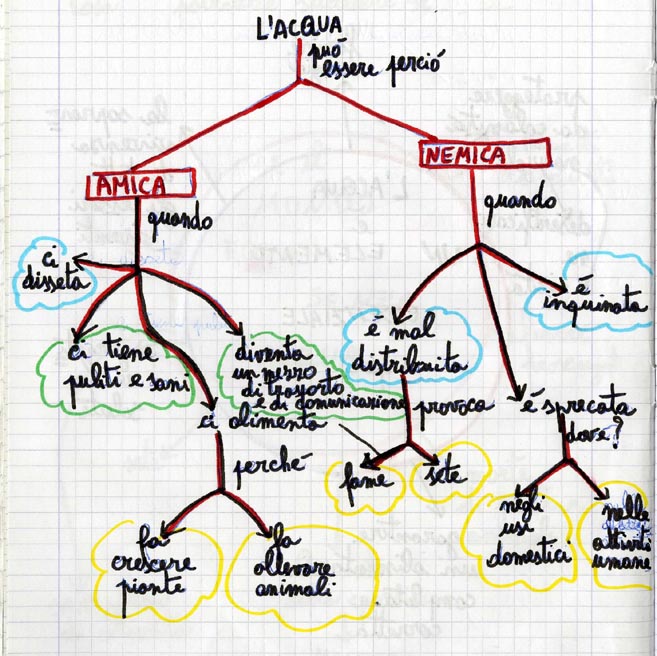 L'ACQUA
può
essere perciò
AMICA
NEMICA
quando
quando
ci
disseta
ci tiene
puliti e sani
diventa
un mezzo
di trasporto
e di comunicazione
ci alimenta
perché
fa
crescere
piante
fa
allevare
animali
é mal
distribuita
provoca
fame
sete
é
inquinata
é sprecata
dove?
negli
usi
domestici
nelle
attività
umane